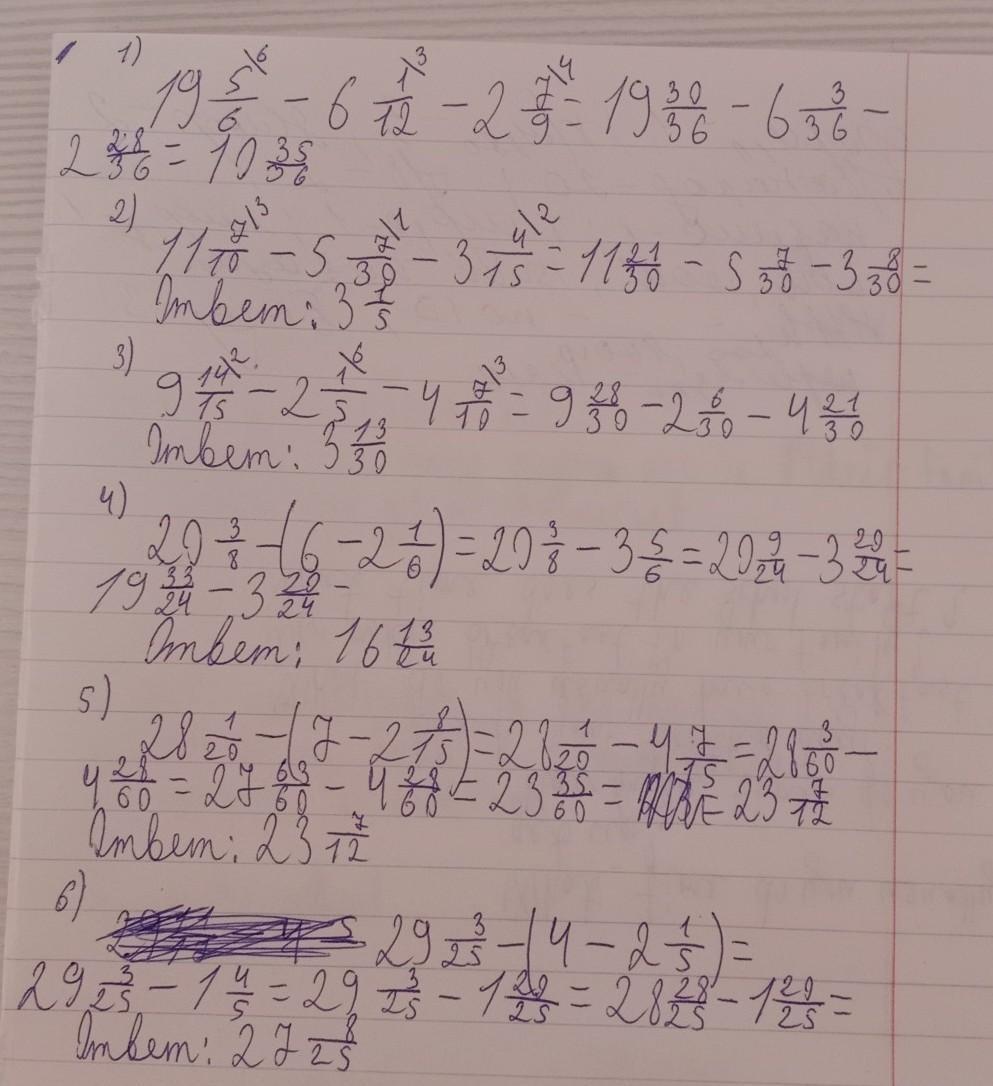 1)
19 5/6 \6 − 6 1/12 \3 − 2 7/9 \4 = 19 30/36 − 6 3/36 −
2 28/36 = 10 35/36
2)
11 7/10 \3 − 5 7/30 \1 − 3 4/15 \2 = 11 21/30 − 5 7/30 − 3 8/30 =
Ответ: 3 1/5
3)
9 14/15 \2 − 2 1/5 \6 − 4 7/10 \3 = 9 28/30 − 2 6/30 − 4 21/30
Ответ: 3 13/30
4)
20 3/8 − (6 − 2 1/6) = 20 3/8 − 3 5/6 = 20 9/24 − 3 20/24 =
19 33/24 − 3 20/24 =
Ответ: 16 13/24
5)
28 1/20 − (7 − 2 8/15) = 28 1/20 − 4 7/15 = 28 3/60 −
4 28/60 = 27 63/60 − 4 28/60 = 23 35/60 = 23 7/12
Ответ: 23 7/12
6)
29 3/25 − (4 − 2 1/5) =
29 3/25 − 1 4/5 = 29 3/25 − 1 20/25 = 28 28/25 − 1 20/25 =
Ответ: 27 8/25